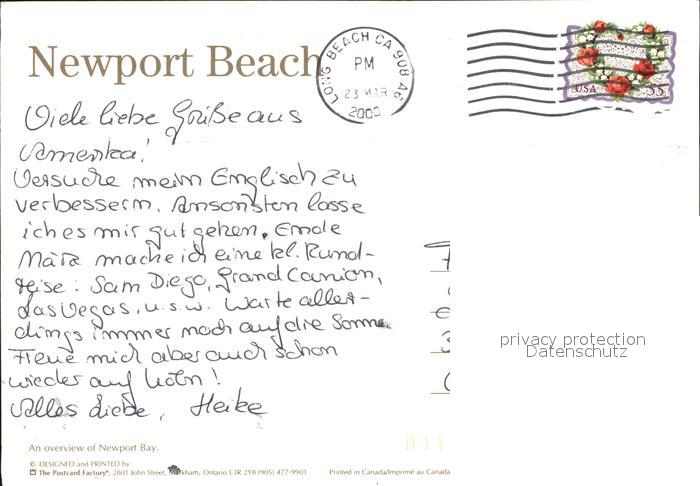 Newport Beach
LONG BEACH CA 908
PM
23 MAR
2000
USA 33
Viele liebe Grüße aus
Amerika!
Versuche mein Englisch zu
verbessern. Ansonsten lasse
ich es mir gut gehen. Ende
März mache ich eine kl. Rund-
reise: San Diego, Grand Canion,
Las Vegas, u.s.w. Warte aller-
dings immer noch auf die Sonne.
Freue mich aber auch schon
wieder auf
Alles Liebe, Heike
privacy protection
Datenschutz
An overview of Newport Bay.
© DESIGNED and PRINTED by
The Postcard Factory®, 2801 John Street, Markham, Ontario L3R 2Y8 (905) 477-9901
Printed in Canada/Imprimé au Canada